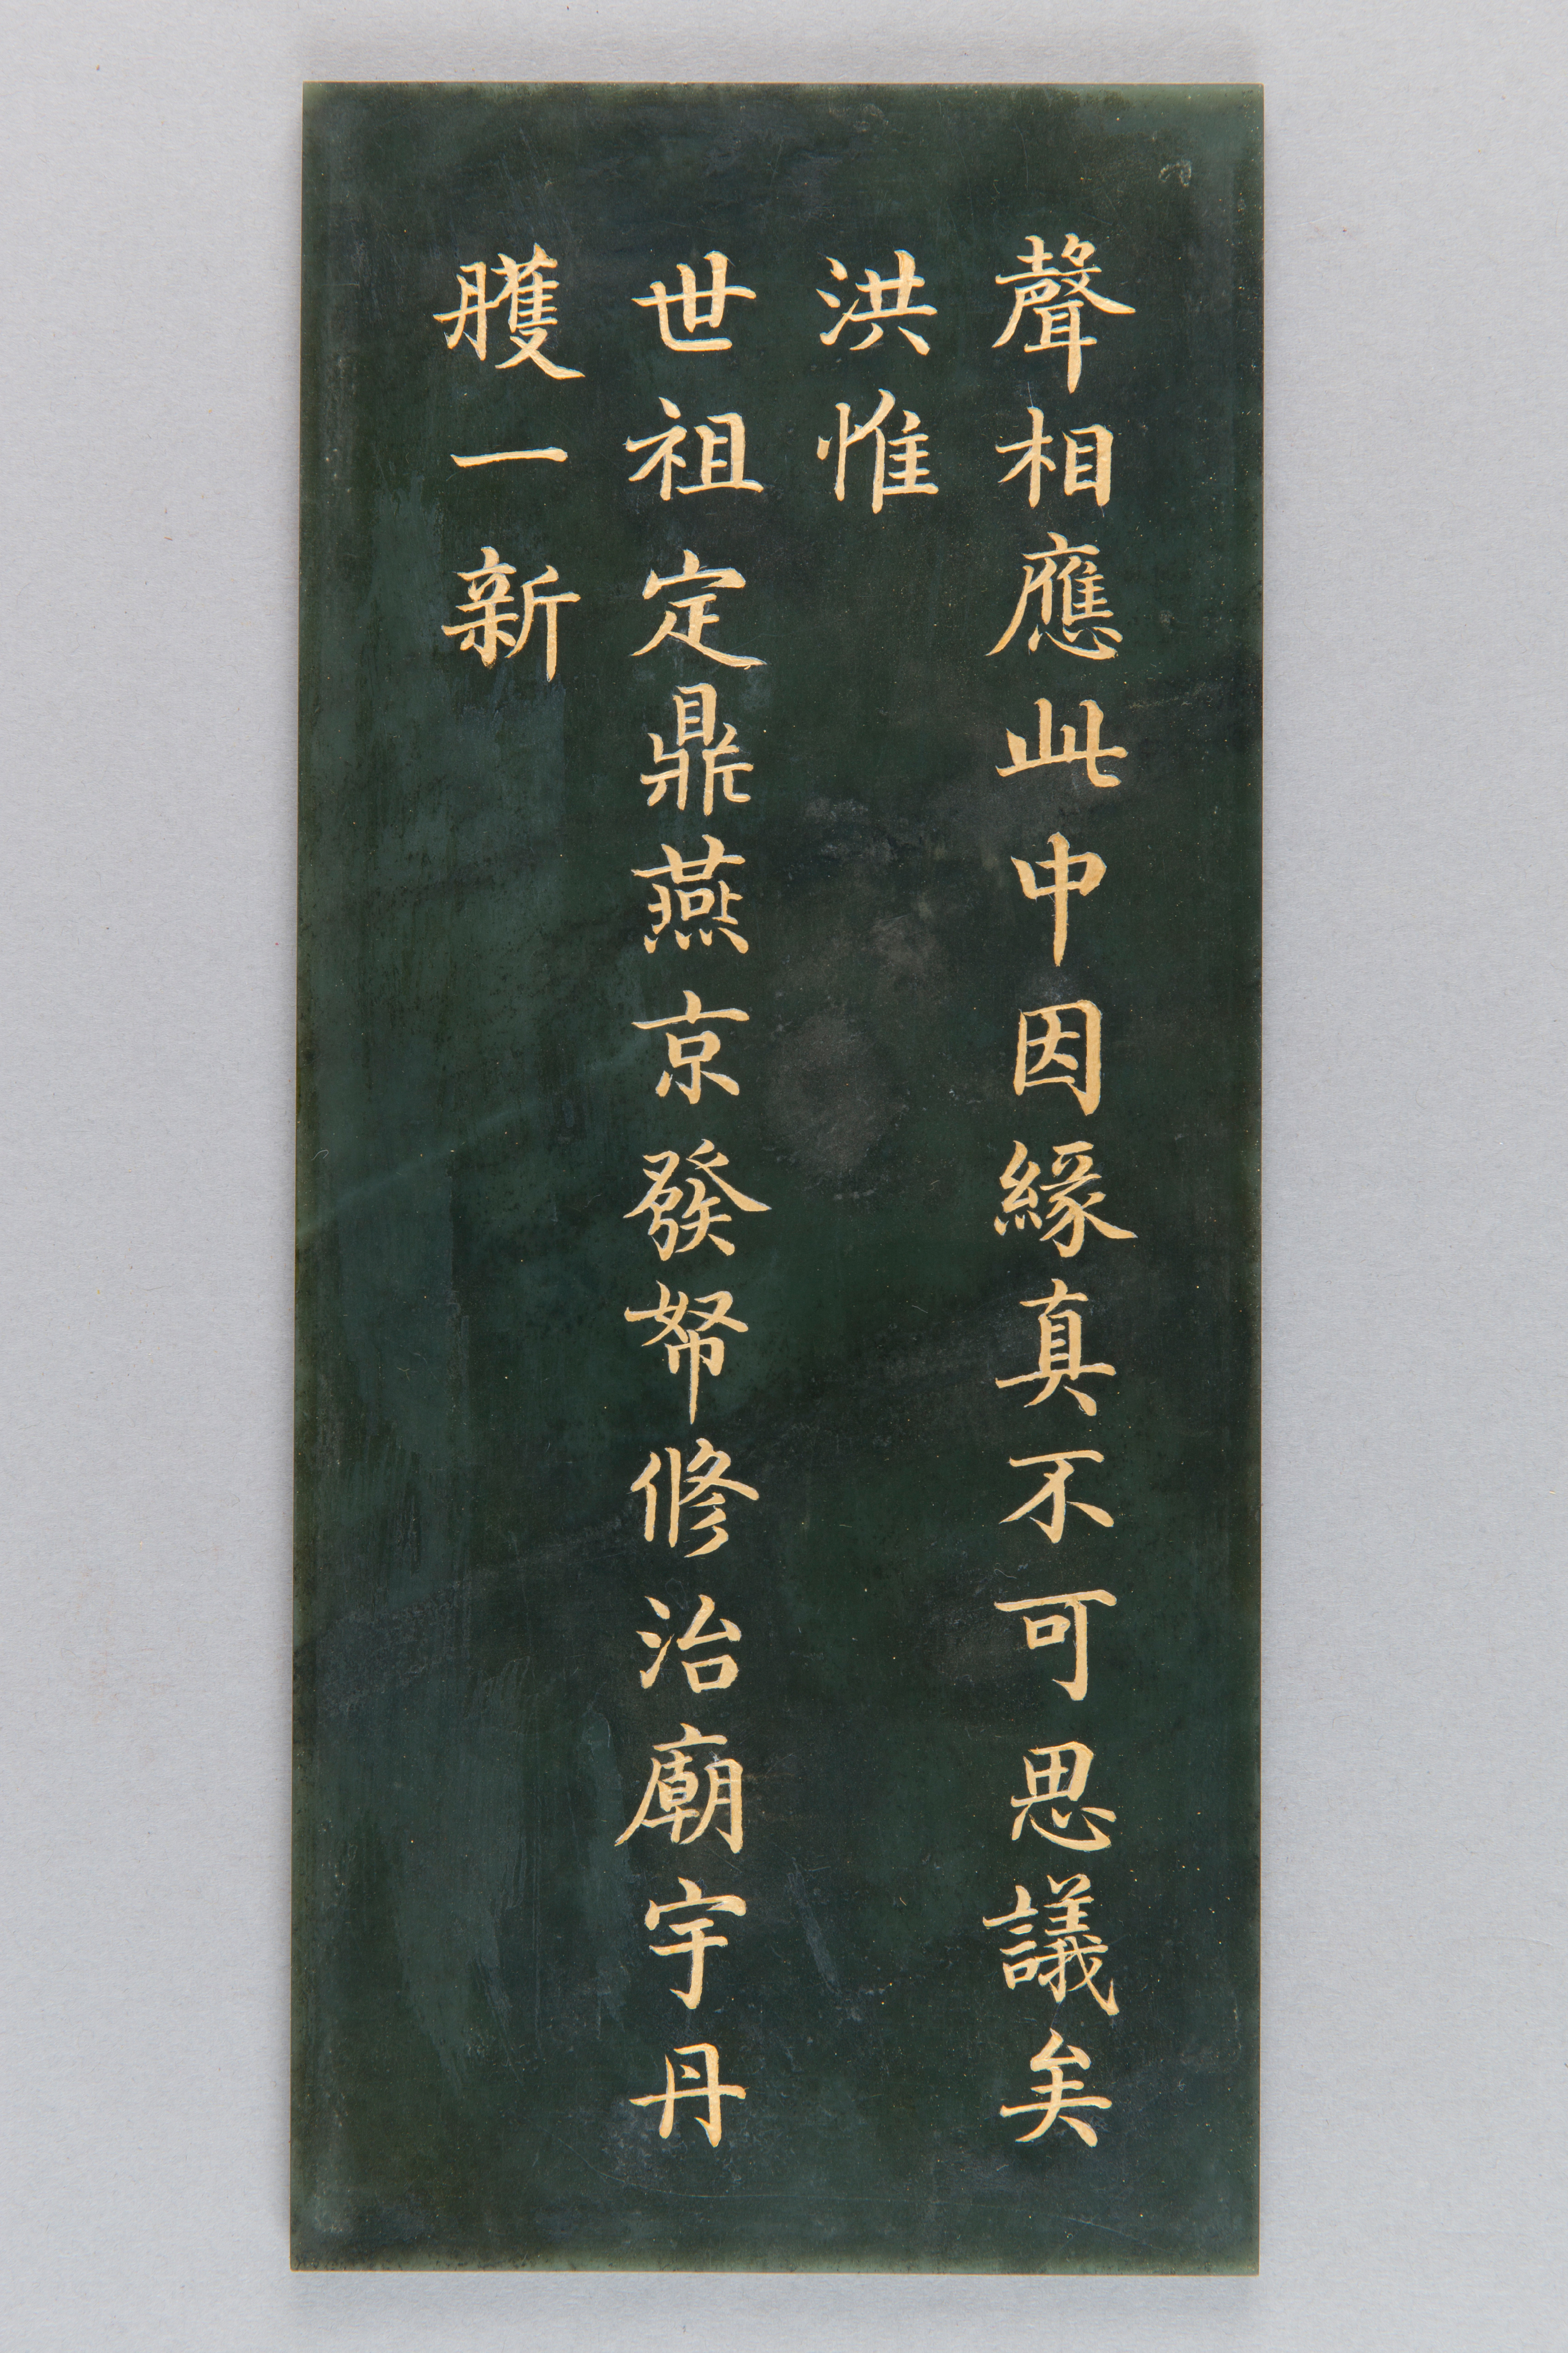 聲相應此中因緣真不可思議矣
洪惟
世祖定鼎燕京發帑修治廟宇丹
雘一新